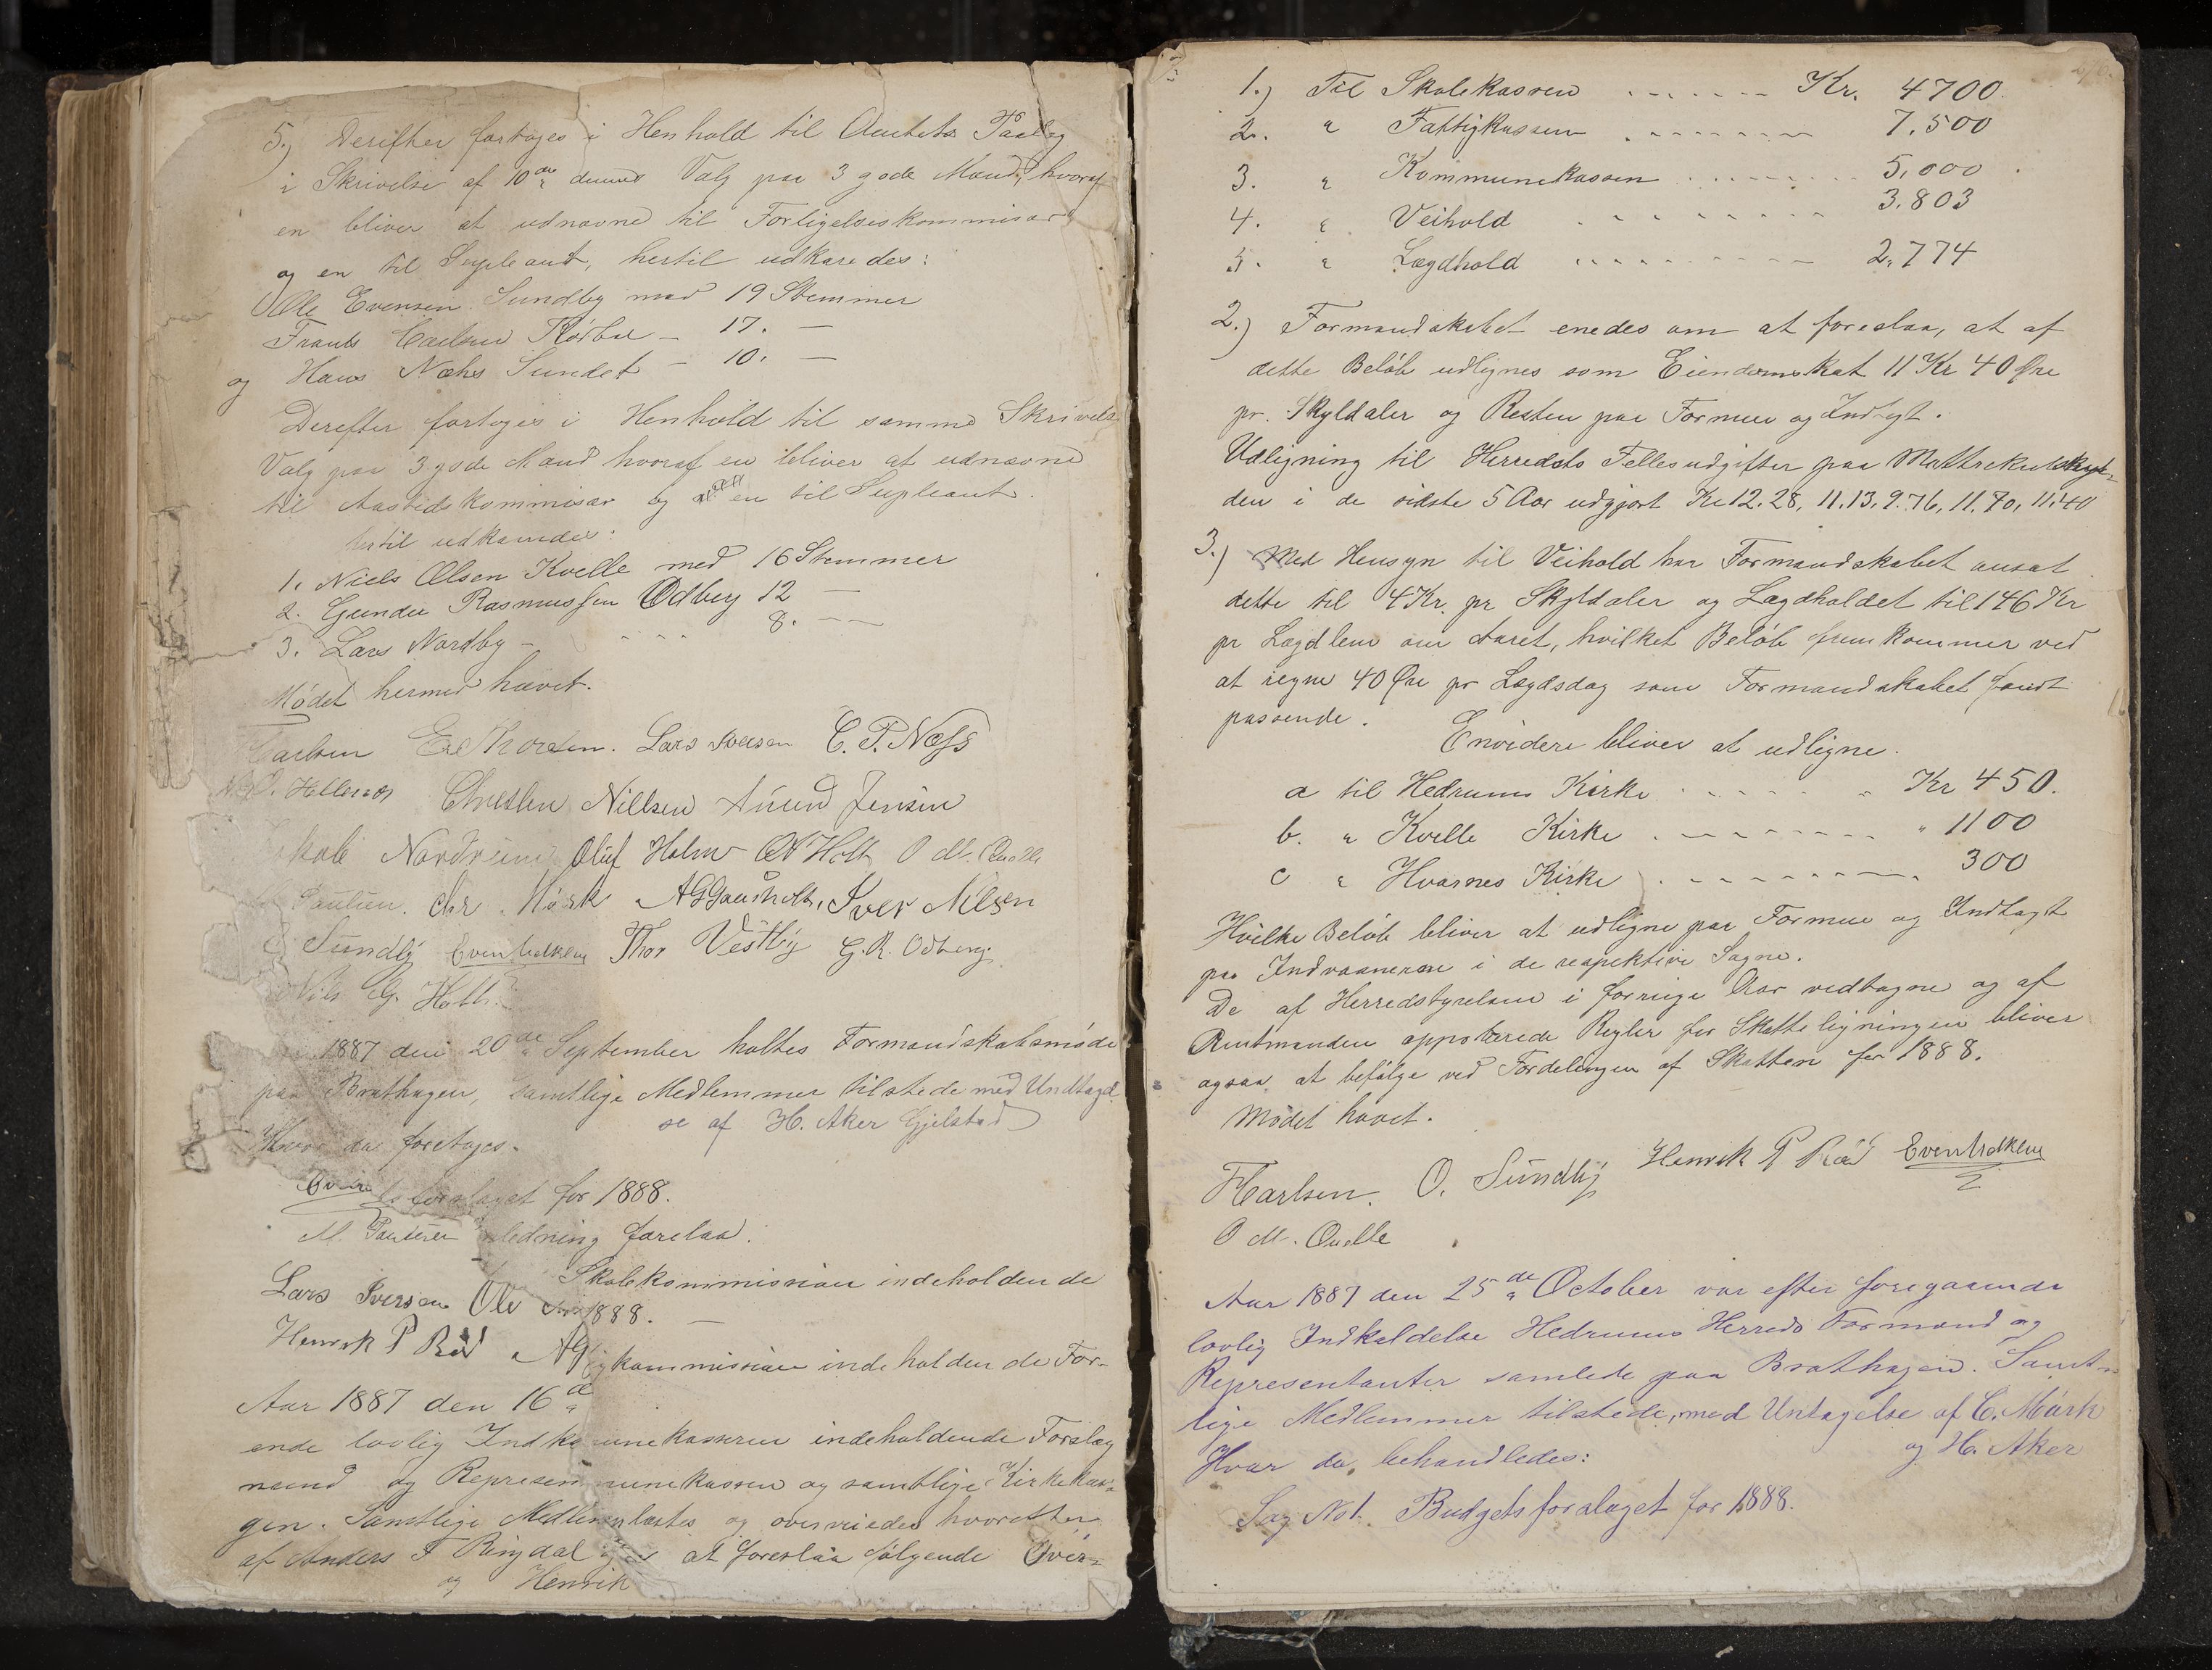 5.) Derefter fortoges i Henhold til Amtets Paalæg
i Skrivelse af 10de dennes Valg paa 3 gode Mænd, hvoraf
en bliver at udnævne til Forligelseskommisær
og en til Supleant, hertil udkaredes:
Ole Evensen Sundby med 19 Stemmer
Frants Carlsen Rödbøl - 17. —
og Hans Næhs Sundet - 10. —
Derefter fortoges i Henhold til samme Skrivelse
Valg paa 3 gode Mænd hvoraf en bliver at udnævne
til Aastedskommisær og en til Supleant.
hertil udkaaredes:
1. Niels Olsen Kvelle med 16 Stemmer
2. Gunder Rasmussen Odberg 12 —
3. Lars Nordby - 8. —
Mödet hermed hævet.
Carlsen E. Thoresen. Lars Iversen C. P. Næss
Chresten Nillsen Anund Jensen
Nordrum Oluf Holm O Holt O M. Quelle
M Paulsen. Chr. Mörk A G Gausholt, Iver Nilsen
O Sundby Even Tredklene Thor Vestby G. R. Odberg
Nils G. Holt.
1887 den 20de September holtes Formandskabsmöde
paa Brathagen, samtlige Medlemmer tilstede med Undtagel
se af H. Aker Gjelstad
Hvor da foretoges.
forslaget for 1888.
M. Paulsen ledning forelaa.
Skolekommission indeholdende
Lars Iversen Ole 1888. —
Henrik P Röd AG kommission indeholdende For-
Aar 1887 den 16de
ende lovlig Indka nekasseren indeholdende Forslag
mænd og Represen munekassen og samtlige Kirkekas-
gen. Samtlige Medlem læstes og overveiedes hvorefter
af Anders F Ringdal at foreslaa fölgende Over-
og Henrik
1.) Til Skolekassen ...... Kr. 4700.
2. " Fattigkassen ...... 7.500
3. " Kommunekassen ...... 5,000.
4. " Veihold ...... 3.803
5. " Lægdhold ...... 2.774
2.) Formandskabet enedes om at foreslaa, at af
dette Belöb udlignes som Eiendomsskat 11 Kr 40 Øre
pr. Skyldaler og Resten paa Formue og Indtægt.
Udligning til Herredets Fellesudgifter paa Mattrekulskyl-
den i de sidste 5 Aar udgjort Kr 12.28, 11.13, 9.76, 11.70, 11.40
3.) Med Hensyn til Veihold har Formandskabet ansat
dette til 4 Kr. pr Skyldaler og Lægdholdet til 146 Kr
pr Lægdlem om Aaret, hvilket Belöb fremkommer ved
at regne 40 Øre pr Lægdsdag som Formandskabet fandt
passende. Envidere bliver at udligne.
a til Hedrums Kirke ...... Kr 450.
b. " Kvelle Kirke ...... " 1100
c " Hvarnes Kirke ...... 300
Hvilke Belöb bliver at udligne paa Formue og Indtægt
paa Indvaanerene i de respektive Sogne.
De af Herredstyrelsen i forrige Aar vedtagne og af
Amtmanden approberede Regler for Skatteligningen bliver
ogsaa at befölge ved Fordelingen af Skatten for 1888.
Mödet hævet.
F Carlsen. O. Sundby Henrik P Röd Even Tredklene
O M. Quelle
Aar 1887 den 25de October var efter foregaaende
lovlig Indkaldelse Hedrums Herreds Formænd og
Representanter samlede paa Brathagen. Samt-
lige Medlemmer tilstede, med Untagelse af C. Mörk
og H. Aker
Hvor da behandledes:
Sag No 1. Budgetsforslaget for 1888.